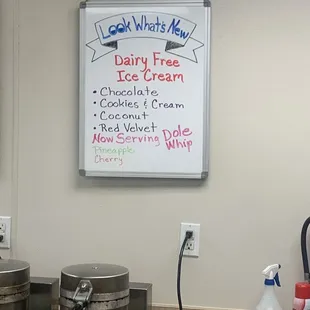 Look What's New
Dairy Free
Ice Cream
• Chocolate
• Cookies & Cream
• Coconut
• Red Velvet
Now Serving Dole Whip
Pineapple
Cherry